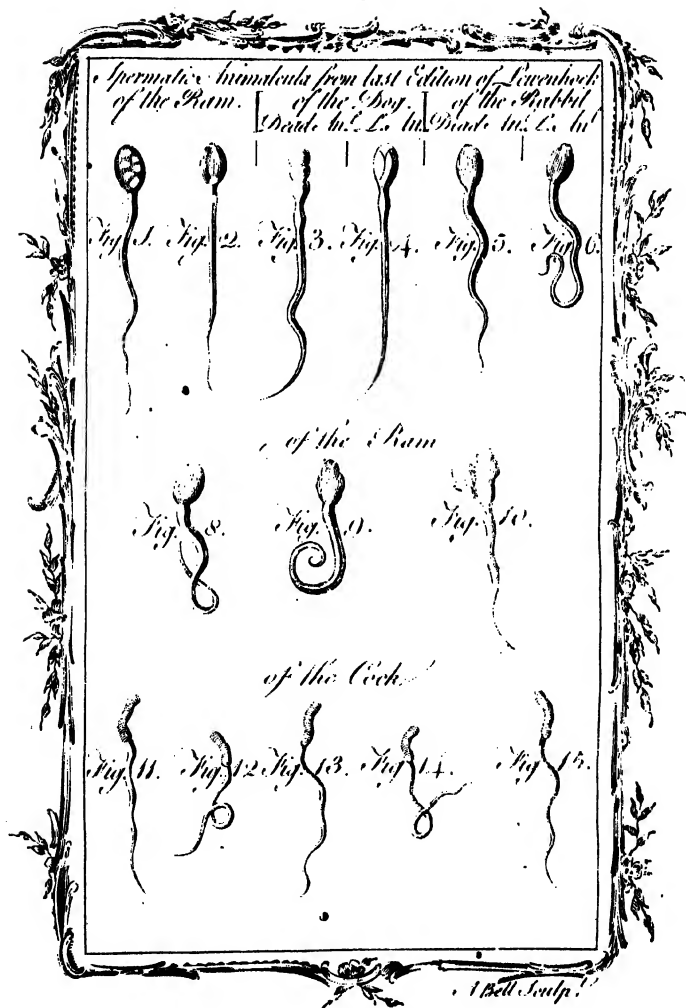 Spermatic Animalcula from last Edition of Lewenhock
of the Ram. of the Dog. of the Rabbit
Dead An.l L.e An.l Dead An.l L.e An.l
Fig. 1. Fig. 2. Fig. 3. Fig. 4. Fig. 5. Fig. 6.
of the Ram
Fig. 8. Fig. 9. Fig. 10.
of the Cock.
Fig. 11. Fig. 12 Fig. 13. Fig. 14. Fig. 15.
A Bell Sculp.t